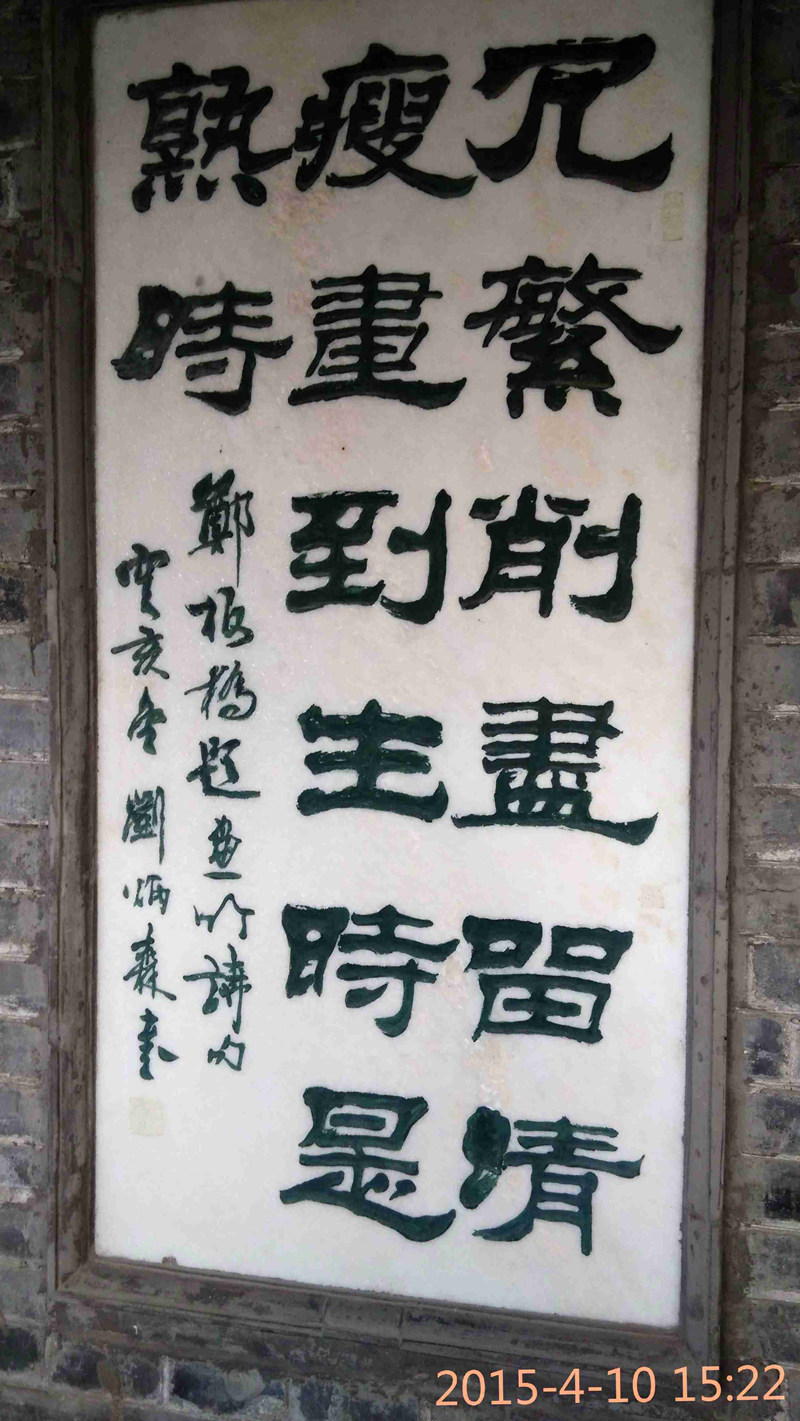 冗繁削盡留清
瘦畫到生時是
熟時
鄭板橋題畫竹詩句
癸亥冬劉炳森書
2015-4-10 15:22